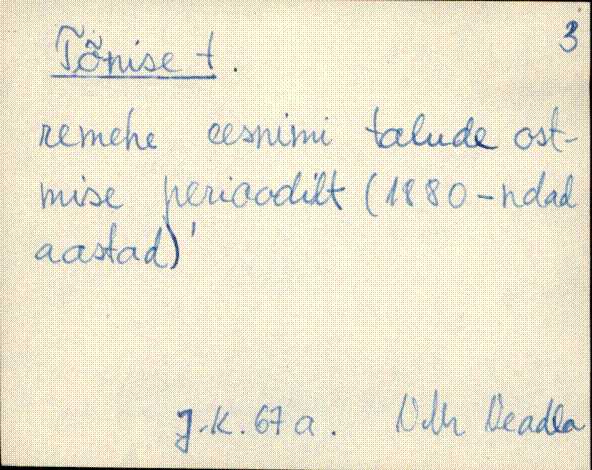 3
Tõnise t.
remehe eesnimi talude ost-
mise perioodilt (1880-ndad
aastad)'
J.K. 67 a.